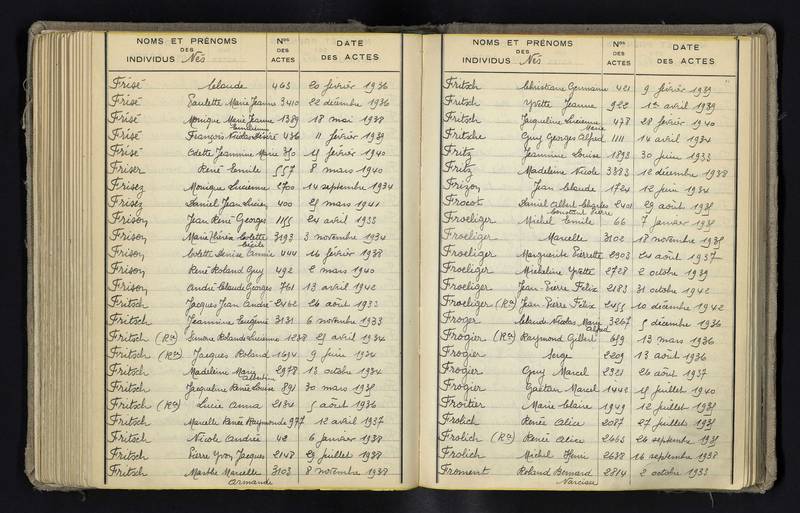 NOMS ET PRÉNOMS DES INDIVIDUS Nés Nos DES ACTES DATE DES ACTES
Frisé Claude 463 20 février 1936
Frisé Paulette Marie Jeanne 3410 22 décembre 1936
Frisé Monique Marie Jeanne 1389 18 mai 1938
Émilienne
Frisé François Nicolas Désiré 436 11 février 1939
Frisé Odette Jeannine Marie 350 15 février 1940
Friser René Emile 557 8 mars 1940
Frisez Monique Lucienne 2700 14 septembre 1934
Frisez Daniel Jean Lucien 400 25 mars 1941
Frison Jean René Georges 1155 24 avril 1933
Frison Marie Thérèse Colette 3193 3 novembre 1934
Cécile
Frison Colette Denise Annie 444 16 février 1938
Frison René Roland Guy 492 2 mars 1940
Frison André Claude Georges 761 13 avril 1942
Fritsch Jacques Jean André 2462 26 août 1933
Fritsch Jeannine Eugénie 3131 6 novembre 1933
Fritsch (Ron) Simone Rolande Lucienne 1238 25 avril 1934
Fritsch (Ron) Jacques Roland 1694 9 juin 1934
Fritsch Madeleine Mary 2978 13 octobre 1934
Albertine
Fritsch Jacqueline Renée Louise 891 30 mars 1935
Fritsch (Ron) Lucie Anna 2134 5 août 1936
Fritsch Marcelle Renée Raymonde 977 12 avril 1937
Fritsch Nicole Andrée 42 6 janvier 1938
Fritsch Pierre Yvon Jacques 2148 29 juillet 1938
Fritsch Marthe Marcelle 3103 8 novembre 1938
Armande
NOMS ET PRÉNOMS DES INDIVIDUS Nés Nos DES ACTES DATE DES ACTES
Fritsch Christiane Germaine 421 9 février 1939
Fritsch Yvette Jeanne 922 1er avril 1939
Fritsch Jacqueline Lucienne 478 28 février 1940
Marie
Fritsche Guy Georges Alfred 1111 14 avril 1934
Fritz Jeannine Louise 1893 30 juin 1933
Fritz Madeleine Nicole 3383 12 décembre 1938
Frizon Jean Claude 1724 12 juin 1934
Frocot Daniel Albert Charles 2401 29 août 1935
Constant Pierre
Froeliger Michel Emile 66 7 janvier 1935
Froeliger Marcelle 3102 18 novembre 1935
Froeliger Marguerite Pierrette 2303 24 août 1937
Froeliger Micheline Yvette 2728 2 octobre 1939
Froeliger Jean-Pierre Félix 2183 31 octobre 1942
Froeliger (Ron) Jean-Pierre Félix 2455 10 décembre 1942
Froger Claude Nicolas Marie 3267 5 décembre 1936
Alfred
Frogier (Ron) Raymond Gilbert 659 13 mars 1936
Frogier Serge 2209 13 août 1936
Frogier Guy Marcel 2321 26 août 1937
Frogier Gaëtan Marcel 1442 15 juillet 1940
Froitier Marie Claire 1949 12 juillet 1935
Frolich Renée Alice 2087 27 juillet 1935
Frolich (Ron) Renée Alice 2663 26 septembre 1935
Frolich Michel Henri 2688 16 septembre 1938
Froment Roland Bernard 2814 2 octobre 1933
Narcisse